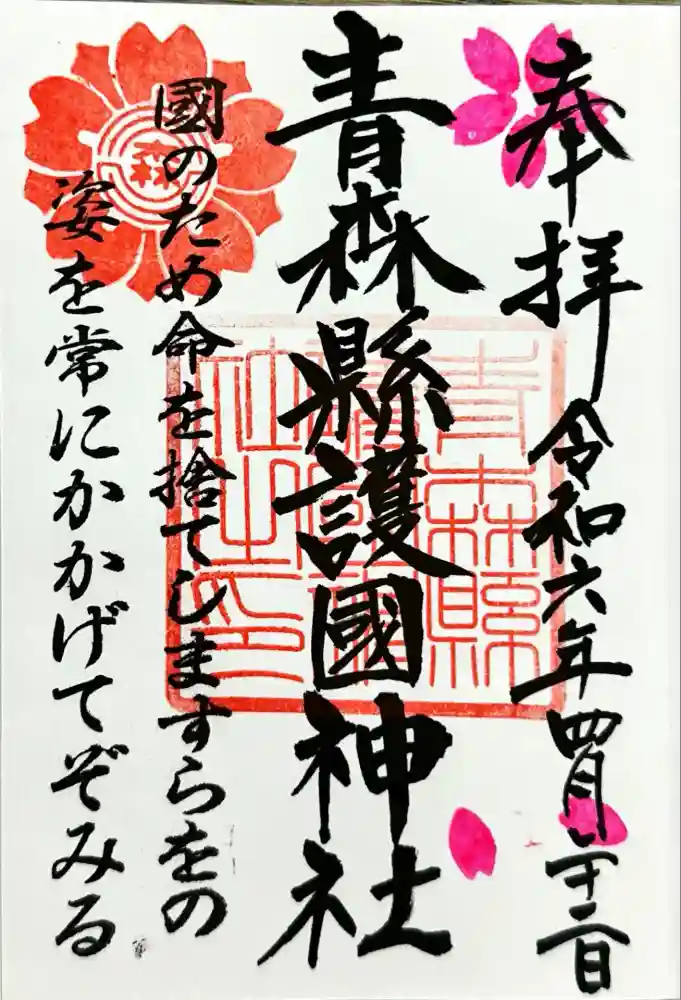 奉拝 令和六年四月二十二日
青森縣護國神社
國のため命を捨てしますらをの
姿を常にかかげてぞみる
森